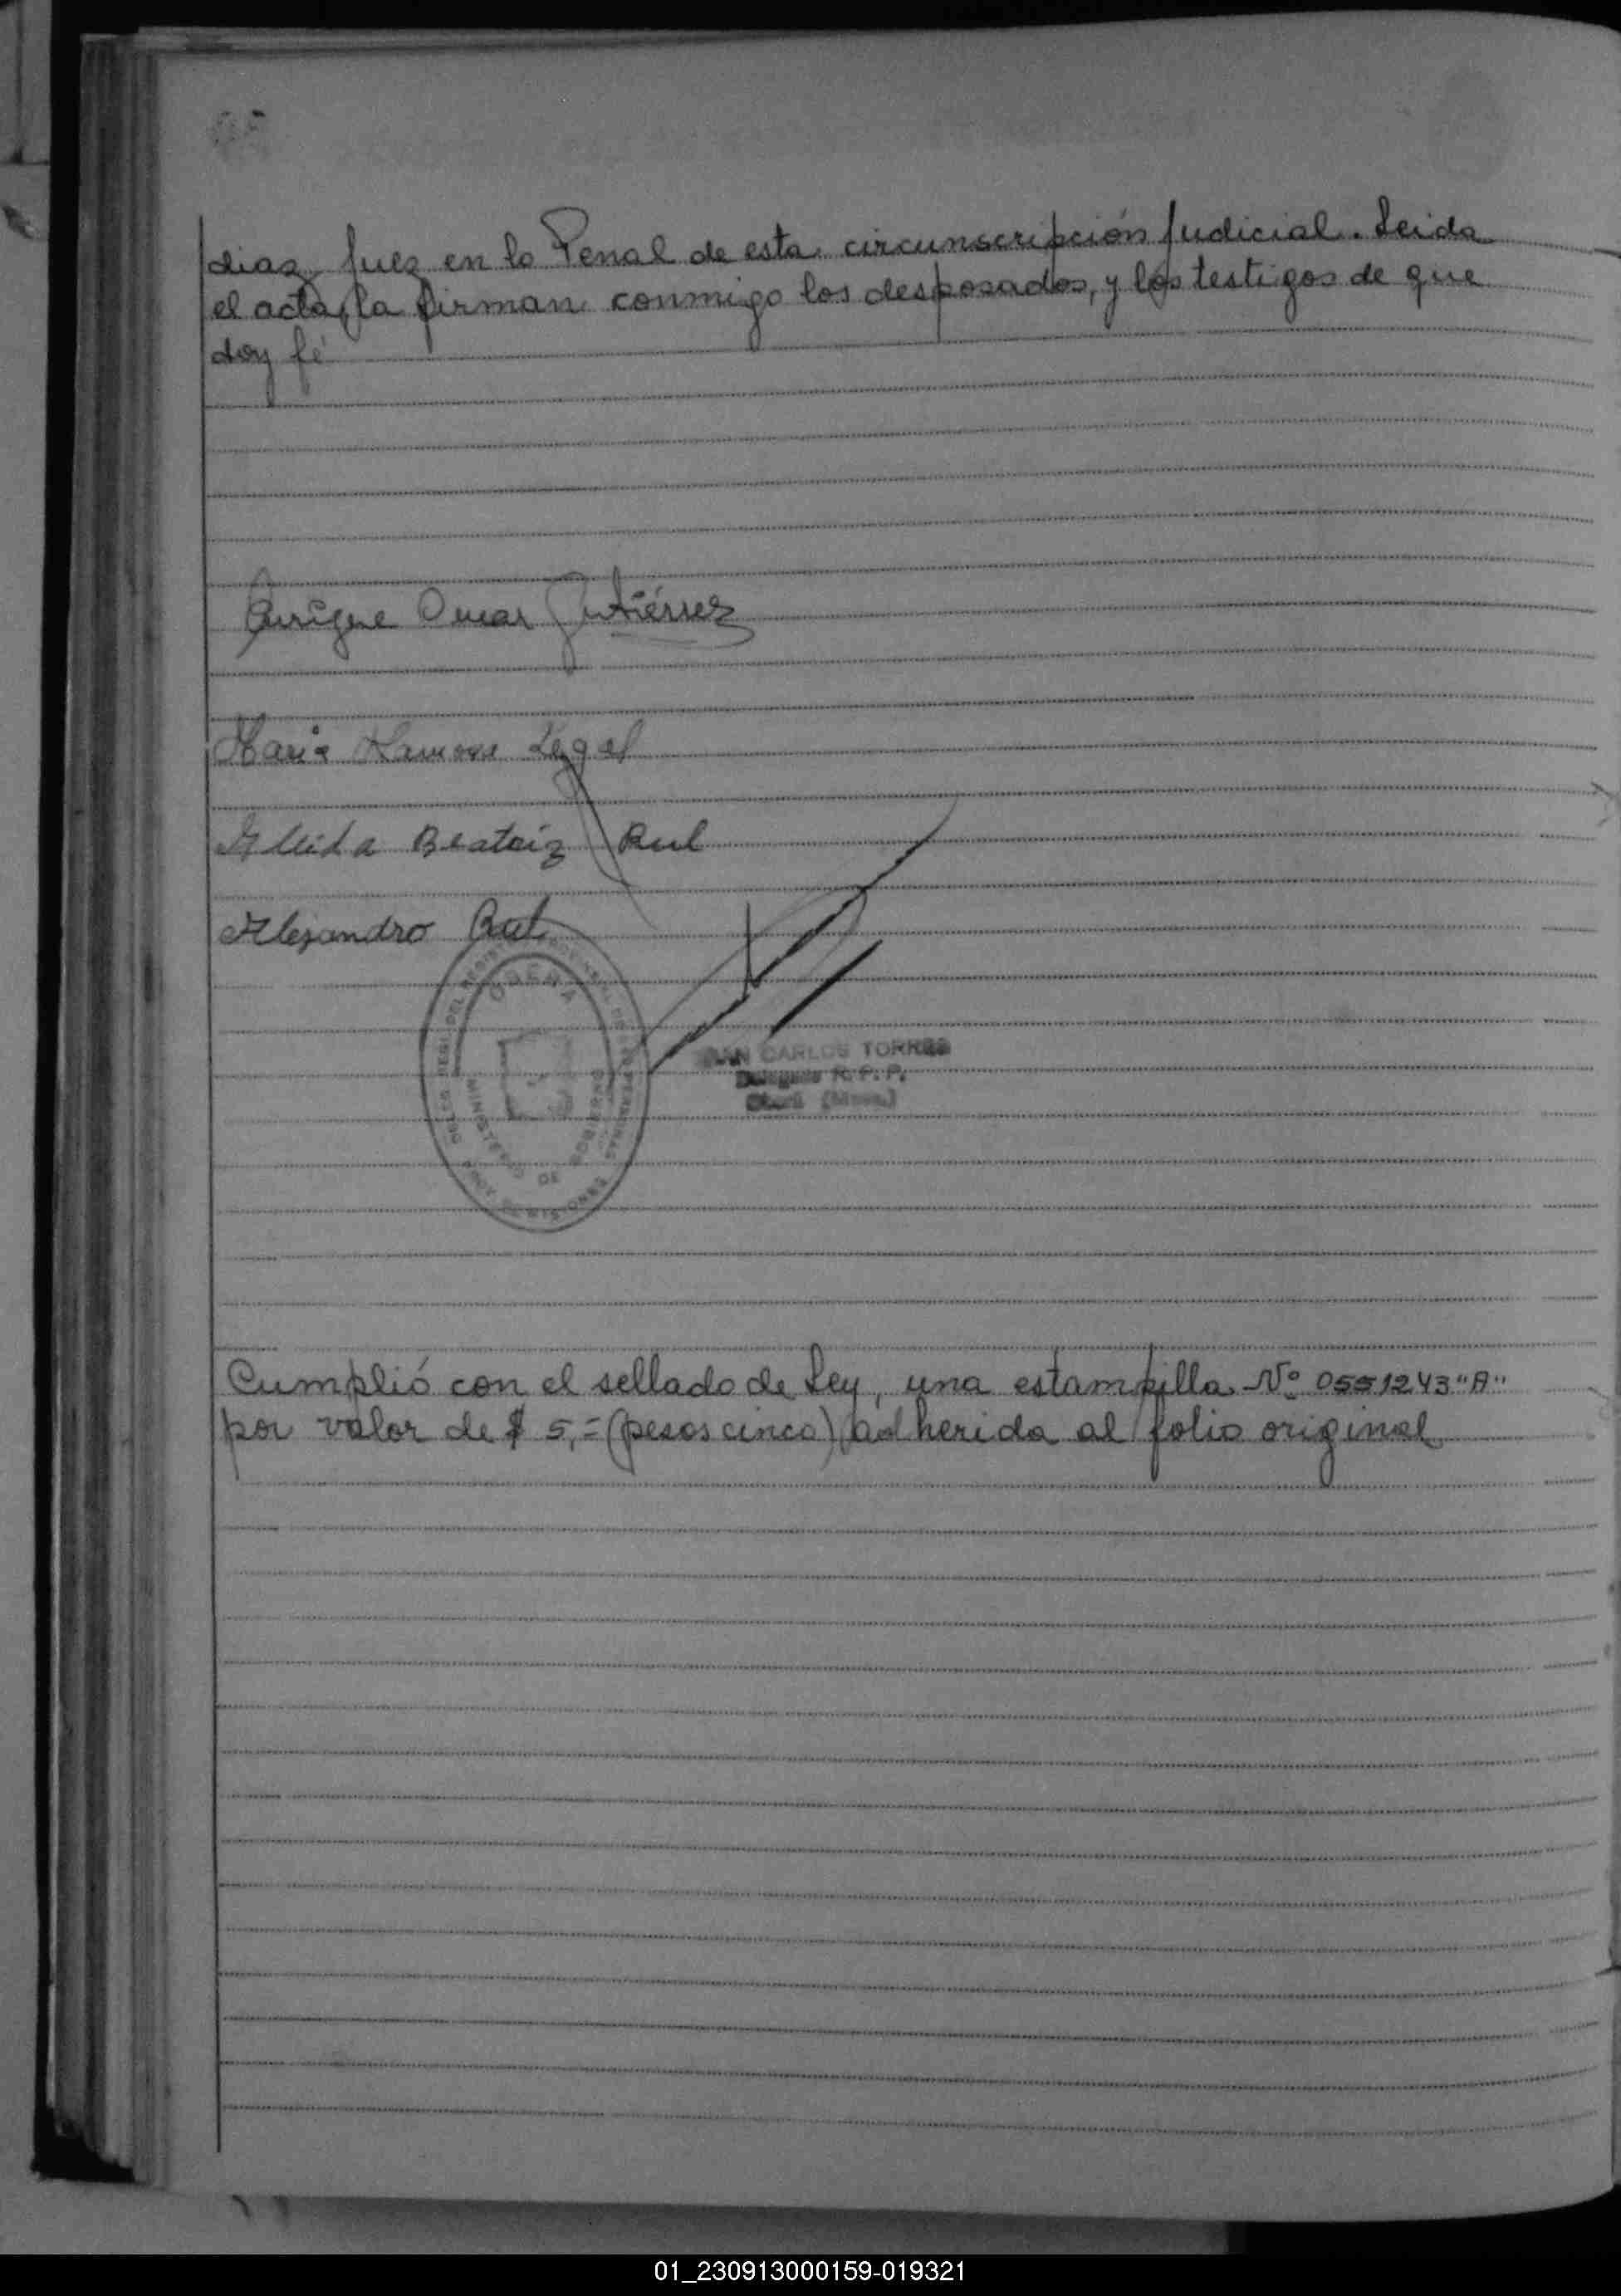 diaz, Juez en lo Penal de esta circunscripción Judicial. Leida
el acta, la firman conmigo los desposados, y los testigos de que
doy fé
Enrique Omar Gutiérrez
Maria Ramona Legal
Beatriz Rul
Alejandro Rul
OBERA
MINISTERIO DE GOBIERNO
MISIONES
JUAN CARLOS TORRES
Delegado R. P. P.
Oberá (Mnes.)
Cumplió con el sellado de Ley, una estampilla Nº 0551243 "A"
por valor de $ 5,= (pesos cinco) adherida al folio original
01_230913000159-019321